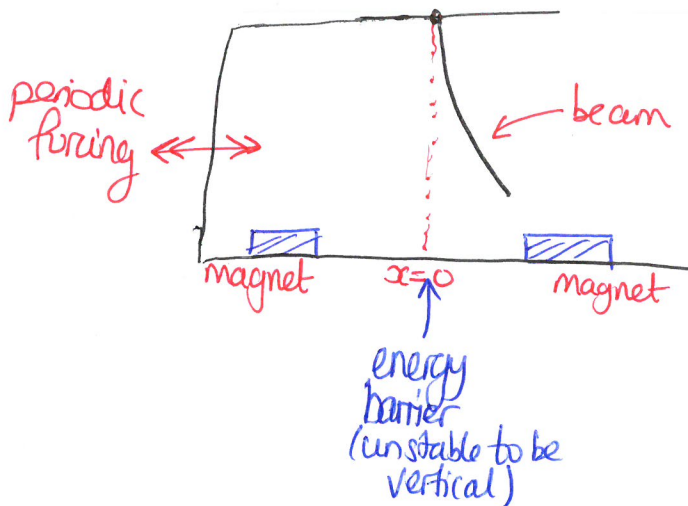 periodic
forcing
beam
magnet
x=0
magnet
energy
barrier
(unstable to be
vertical)